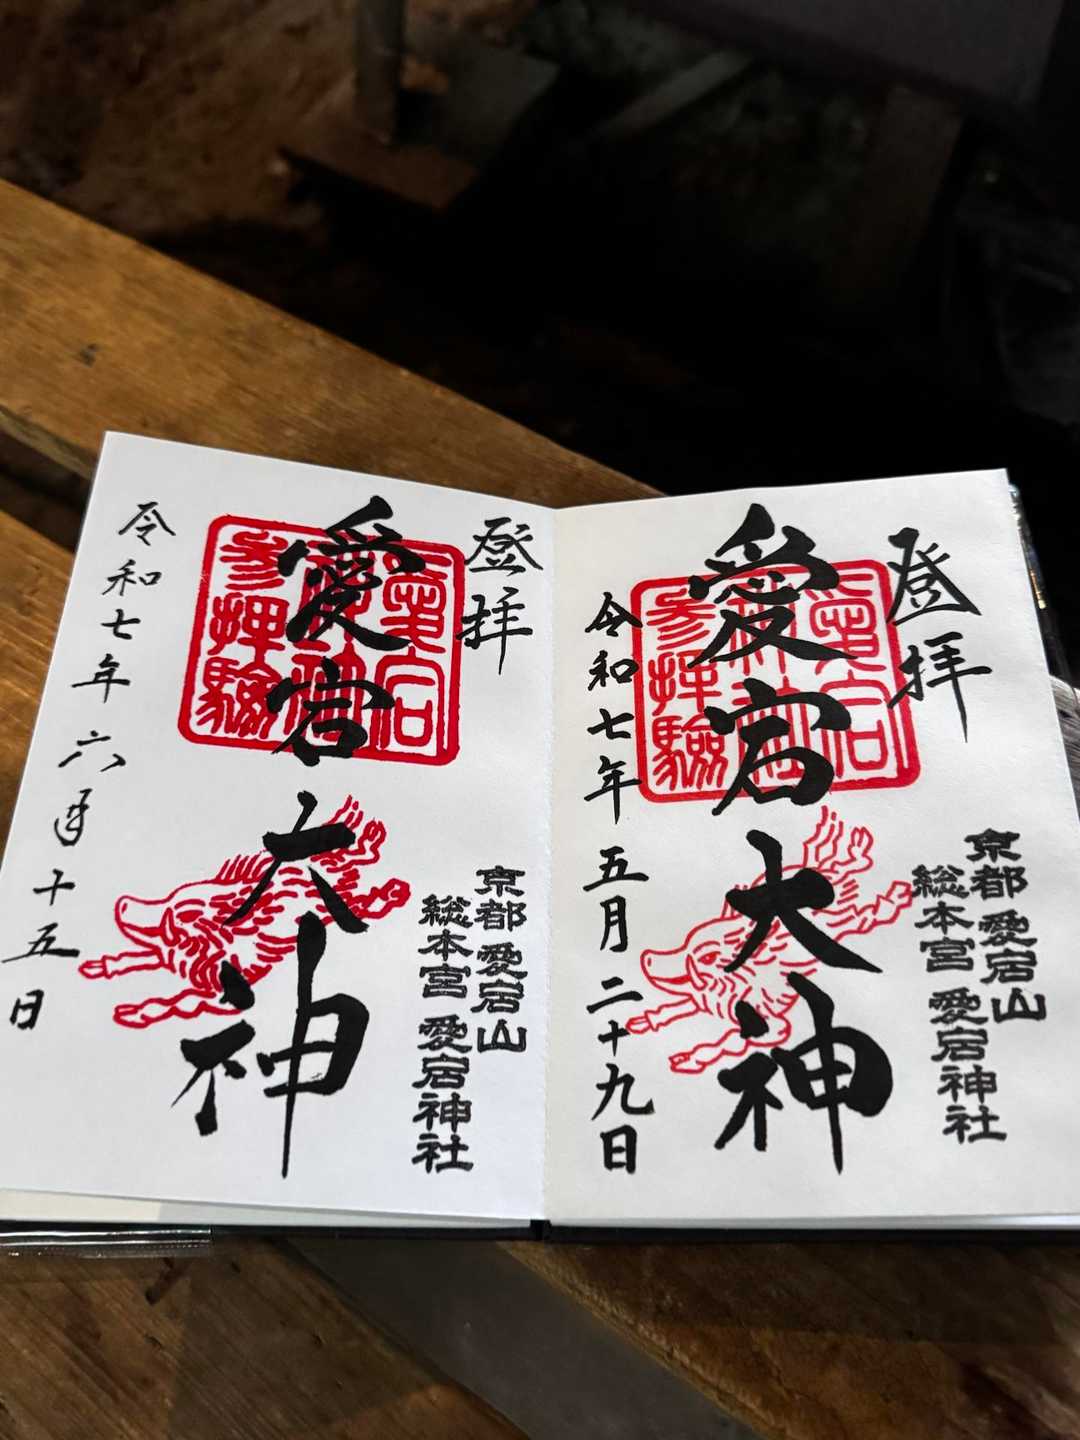 登拝
愛宕大神
令和七年五月二十九日
京都 愛宕山
総本宮 愛宕神社
愛宕
神社
参拝験
登拝
愛宕大神
令和七年六月十五日
京都 愛宕山
総本宮 愛宕神社
愛宕
神社
参拝験